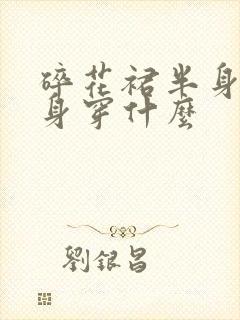 碎花裙半身
身穿什麼
劉銀昌